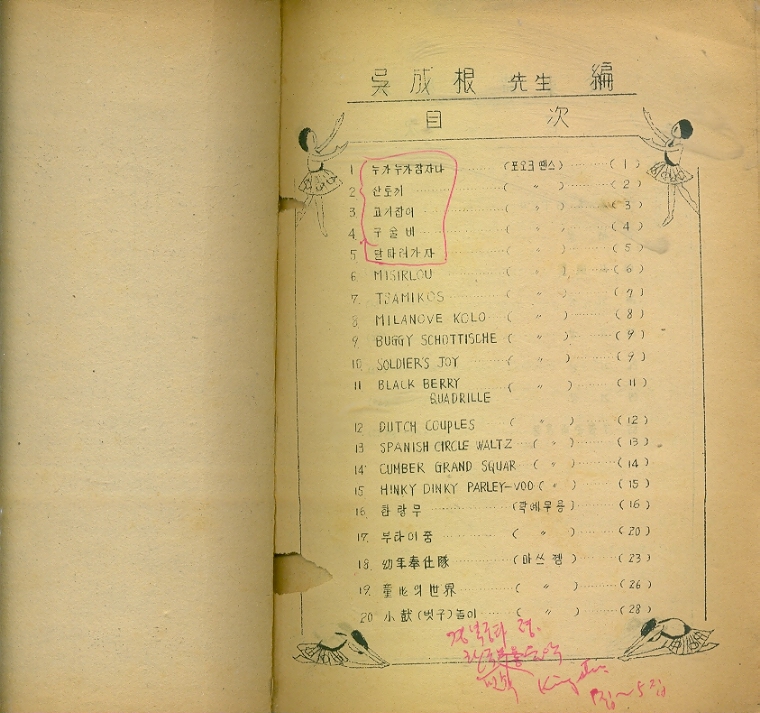 吳成根 先生 編
目 次
1 누가누가잠자나 (포오크땐스) (1)
2 산토끼 ( 〃 ) (2)
3. 고기잡이 ( 〃 ) (3)
4. 구슬비 ( 〃 ) (4)
5. 달타러가자 ( 〃 ) (5)
6. MISIRLOU ( 〃 ) (6)
7. TSAMIKOS ( 〃 ) (7)
8. MILANOVE KOLO ( 〃 ) (8)
9. BUGGY SCHOTTISCHE ( 〃 ) (9)
10 SOLDIER'S JOY ( 〃 ) (9)
11 BLACK BERRY ( 〃 ) (11)
QUADRILLE
12 DUTCH COUPLES ( 〃 ) (12)
13 SPANISH CIRCLE WALTZ ( 〃 ) (13)
14 CUMBER GRAND SQUAR ( 〃 ) (14)
15 HINKY DINKY PARLEY-VOO ( 〃 ) (15)
16. 한량무 (학예무용) (16)
17. 부라이중 ( 〃 ) (20)
18. 幼年奉仕隊 (마쓰껨) (23)
19. 童心의世界 ( 〃 ) (26)
20 小鼓(벗구)놀이 ( 〃 ) (28)